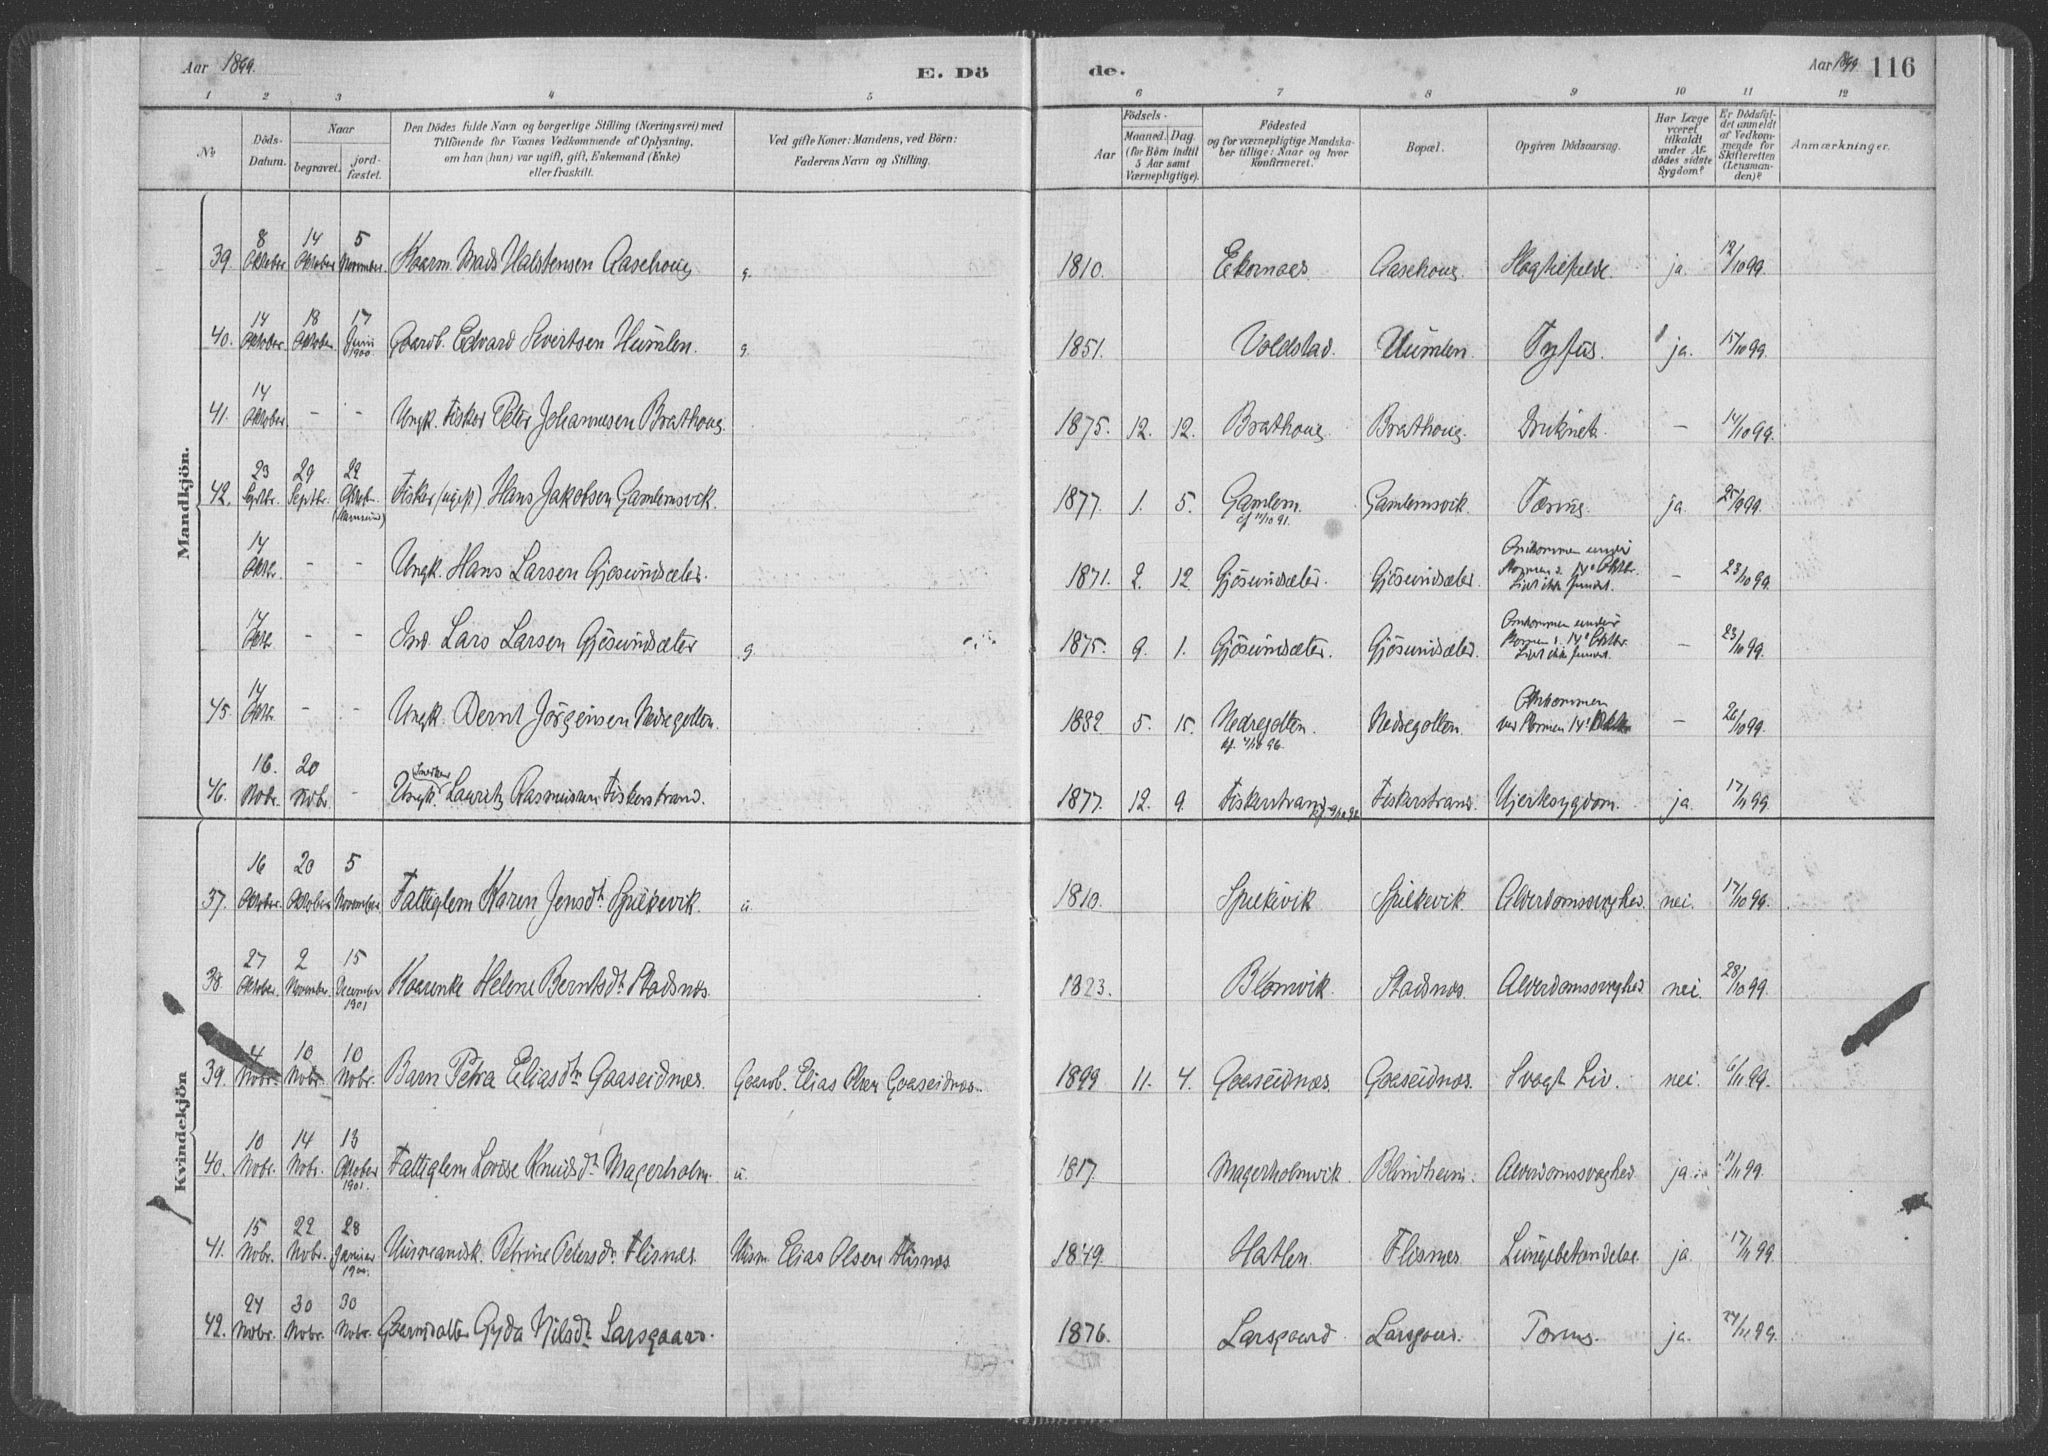 Aar 1899.
E. Dö
de.
Aar 1899 116
1 2 3 4 5 6 7 8 9 10 11 12
No
Döds-Datum.
Naar
begravet.
jord-fæstet.
Den Dödes fulde Navn og borgerlige Stilling (Næringsvei) med
Tilföiende for Voxnes Vedkommende af Oplysning,
om han (hun) var ugift, gift, Enkemand (Enke)
eller fraskilt.
Ved gifte Koner: Mandens, ved Börn:
Faderens Navn og Stilling.
Födsels-
Aar
Maaned. Dag.
(for Börn indtil
5 Aar samt
Værnepligtige).
Födested
og for værnepligtige Mandska-
ber tillige: Naar og hvor
konfirmeret.
Bopæl.
Opgiven Dödsaarsag.
Har Læge
været
tilkaldt
under Af-
dödes sidste
Sygdom?
Er Dödsfal-
det anmeldt
af Vedkom-
mende for
Skifteretten
(Lensman-
den)?
Anmærkninger.
Mandkjön.
39. 8 Oktober 14 Oktober 5 Novemb. Kaarm. Mads Halstensen Aasehoug g. 1810. Ekornæs Aasehoug ja 12/10 99.
40. 14 Oktober 18 Oktober 17 Juni 1900. Gaardb. Edvard Sivertsen Humlen. g. 1851. Voldstad. Humlen. Tyfus. ja. 15/10 99.
41. 14 Oktober. - - Ungk. Fisker Peter Johannesen Brathoug. 1875. 12. 12. Brathoug Brathoug. Druknet. - 14/10 99.
42. 23 Septbr. 29 Septbr. 22 Oktob. Fisker (ugift) Hans Jakobsen Gamlemsvik. 1877. 1. 5. Gamlem. Gamlemsvik. Tæring ja. 25/9 99.
14 Oktbr. - - Ungk. Hans Larsen Gjösundsæter. 1871. 2. 12. Gjösundsæter. Gjösundsæter. Omkommen under Stormen d. 14de Oktbr. Liget ikke fundet. - 23/10 99.
14 Oktbr. - - Ind. Lars Larsen Gjösundsæter g. 1875. 9. 1. Gjösundsæter. Gjösundsæter. Omkommen under Stormen d. 14de Oktbr. Liget ikke fundet. - 23/10 99.
45. 14 Oktbr. - - Ungk. Bernt Jörgensen Nedregotten. 1882. 5. 15. Nedregotten Nedregotten. Omkommen ved Stormen 14de Oktbr. - 26/10 99.
46. 16. Novbr. 20 Novbr. - Ungk. Snedker Lauritz Rasmussen Fiskerstrand. 1877. 12. 9. Fiskerstrand Fiskerstrand. Hjertesygdom. ja. 17/11 99.
Kvindekjön
37. 16 Oktober. 20 Oktober 5 November Fattiglem Karen Jensdt. Spilkevik. u. 1810. Spilkevik Spilkevik. Alderdomssvaghed. nei. 17/10 99.
38 27 Oktober. 2 November. 15 December 1901 Kaarenke Helene Berntsdt. Stadsnæs. 1823. Blomvik. Stadsnæs. Alderdomssvaghed nei. 28/10 99.
39. 4 Novbr. 10 Novbr. 10 Novbr. Barn Petra Eliasdtr. Gaaseidnæs. Gaardb. Elias Olsen Gaaseidnæs. 1899 11. 4. Gaaseidnæs. Gaaseidnæs. Svagt Liv. nei. 6/11 99.
40. 10 Novbr. 14 Novbr. 13 Oktober 1901. Fattiglem Lovise Knudsdt. Magerholm. u. 1817. Magerholmvik. Blindheim. Alderdomssvaghed ja. 11/11 99.
41. 15 Novbr. 22 Novbr. 28 Januar 1900. Husmandsk. Petrine Petersdt. Flisnes. Husm. Elias Olsen Flisnæs 1849. Hatlen. Flisnes. Lungebetændelse ja. 17/11 99.
42. 24 Novbr. 30 Novbr. 30 Novbr. Gaardmdatter Gyda Nilsdt. Larsgaard. 1876. Larsgaard. Larsgaard. Tæring. ja. 24/11 99.